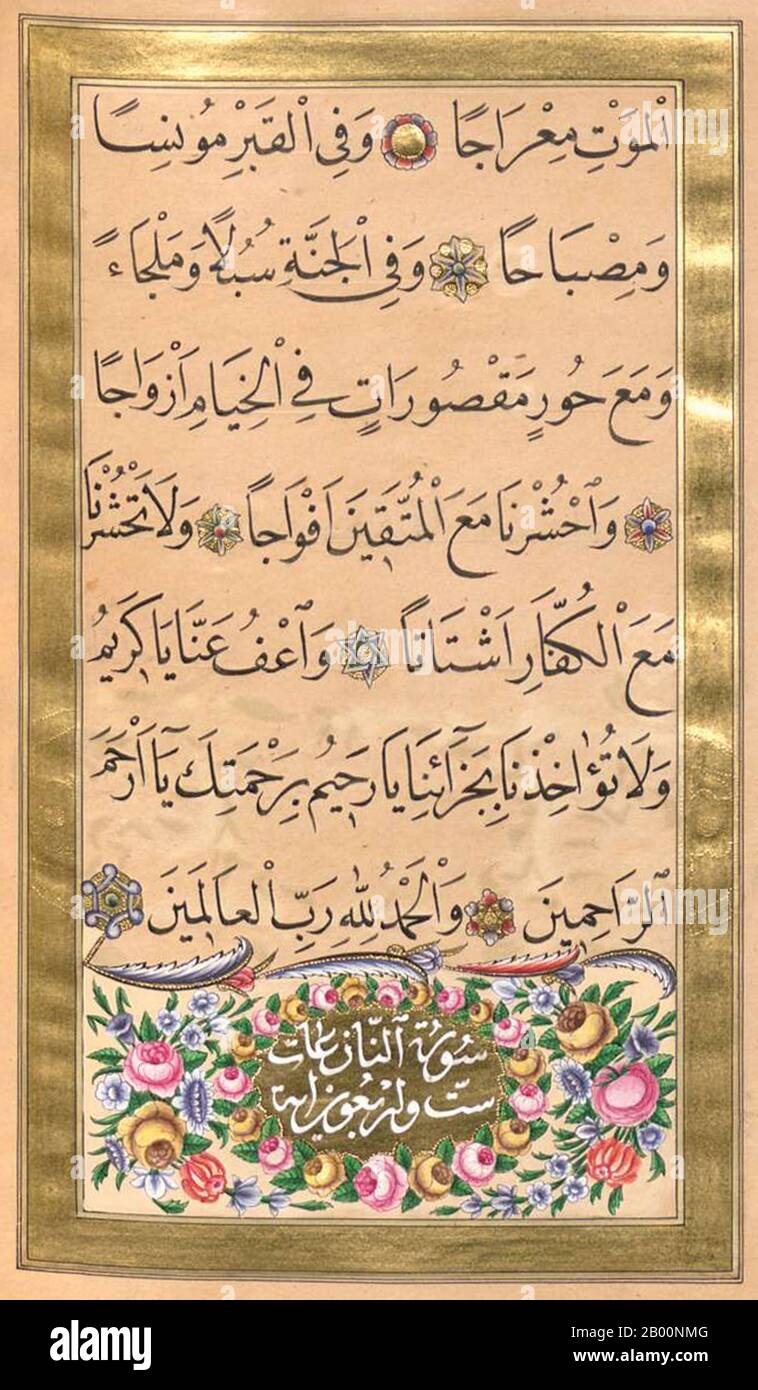 اَلْمَوْتِ مِعْرَاجًا وَفِى الْقَبْرِ مُونِسًا
وَمِصْبَاحًا وَفِى الْجَنَّةِ سُبُلًا وَمَلْجَاءً
وَمَعَ حُورٍ مَقْصُورَاتٍ فِى الْخِيَامِ اَزْوَاجًا
وَاحْشُرْنَا مَعَ الْمُتَّقِينَ اَفْوَاجًا وَلَا تَحْشُرْنَا
مَعَ الْكُفَّارِ اَشْتَاتًا وَاعْفُ عَنَّا يَا كَرِيمُ
وَلَا تُؤَاخِذْنَا بِجَرَآئِنَا يَا رَحِيمُ بِرَحْمَتِكَ يَآ اَرْحَمَ
الرَّاحِمِينَ وَالْحَمْدُ لِلّٰهِ رَبِّ الْعَالَمِينَ
سُورَةُ اَلنَّازِعَاتِ
سِتّ وَاَرْبَعُونَ اٰيَة
a alamy
alamy
Image ID: 2B00NMG
www.alamy.com